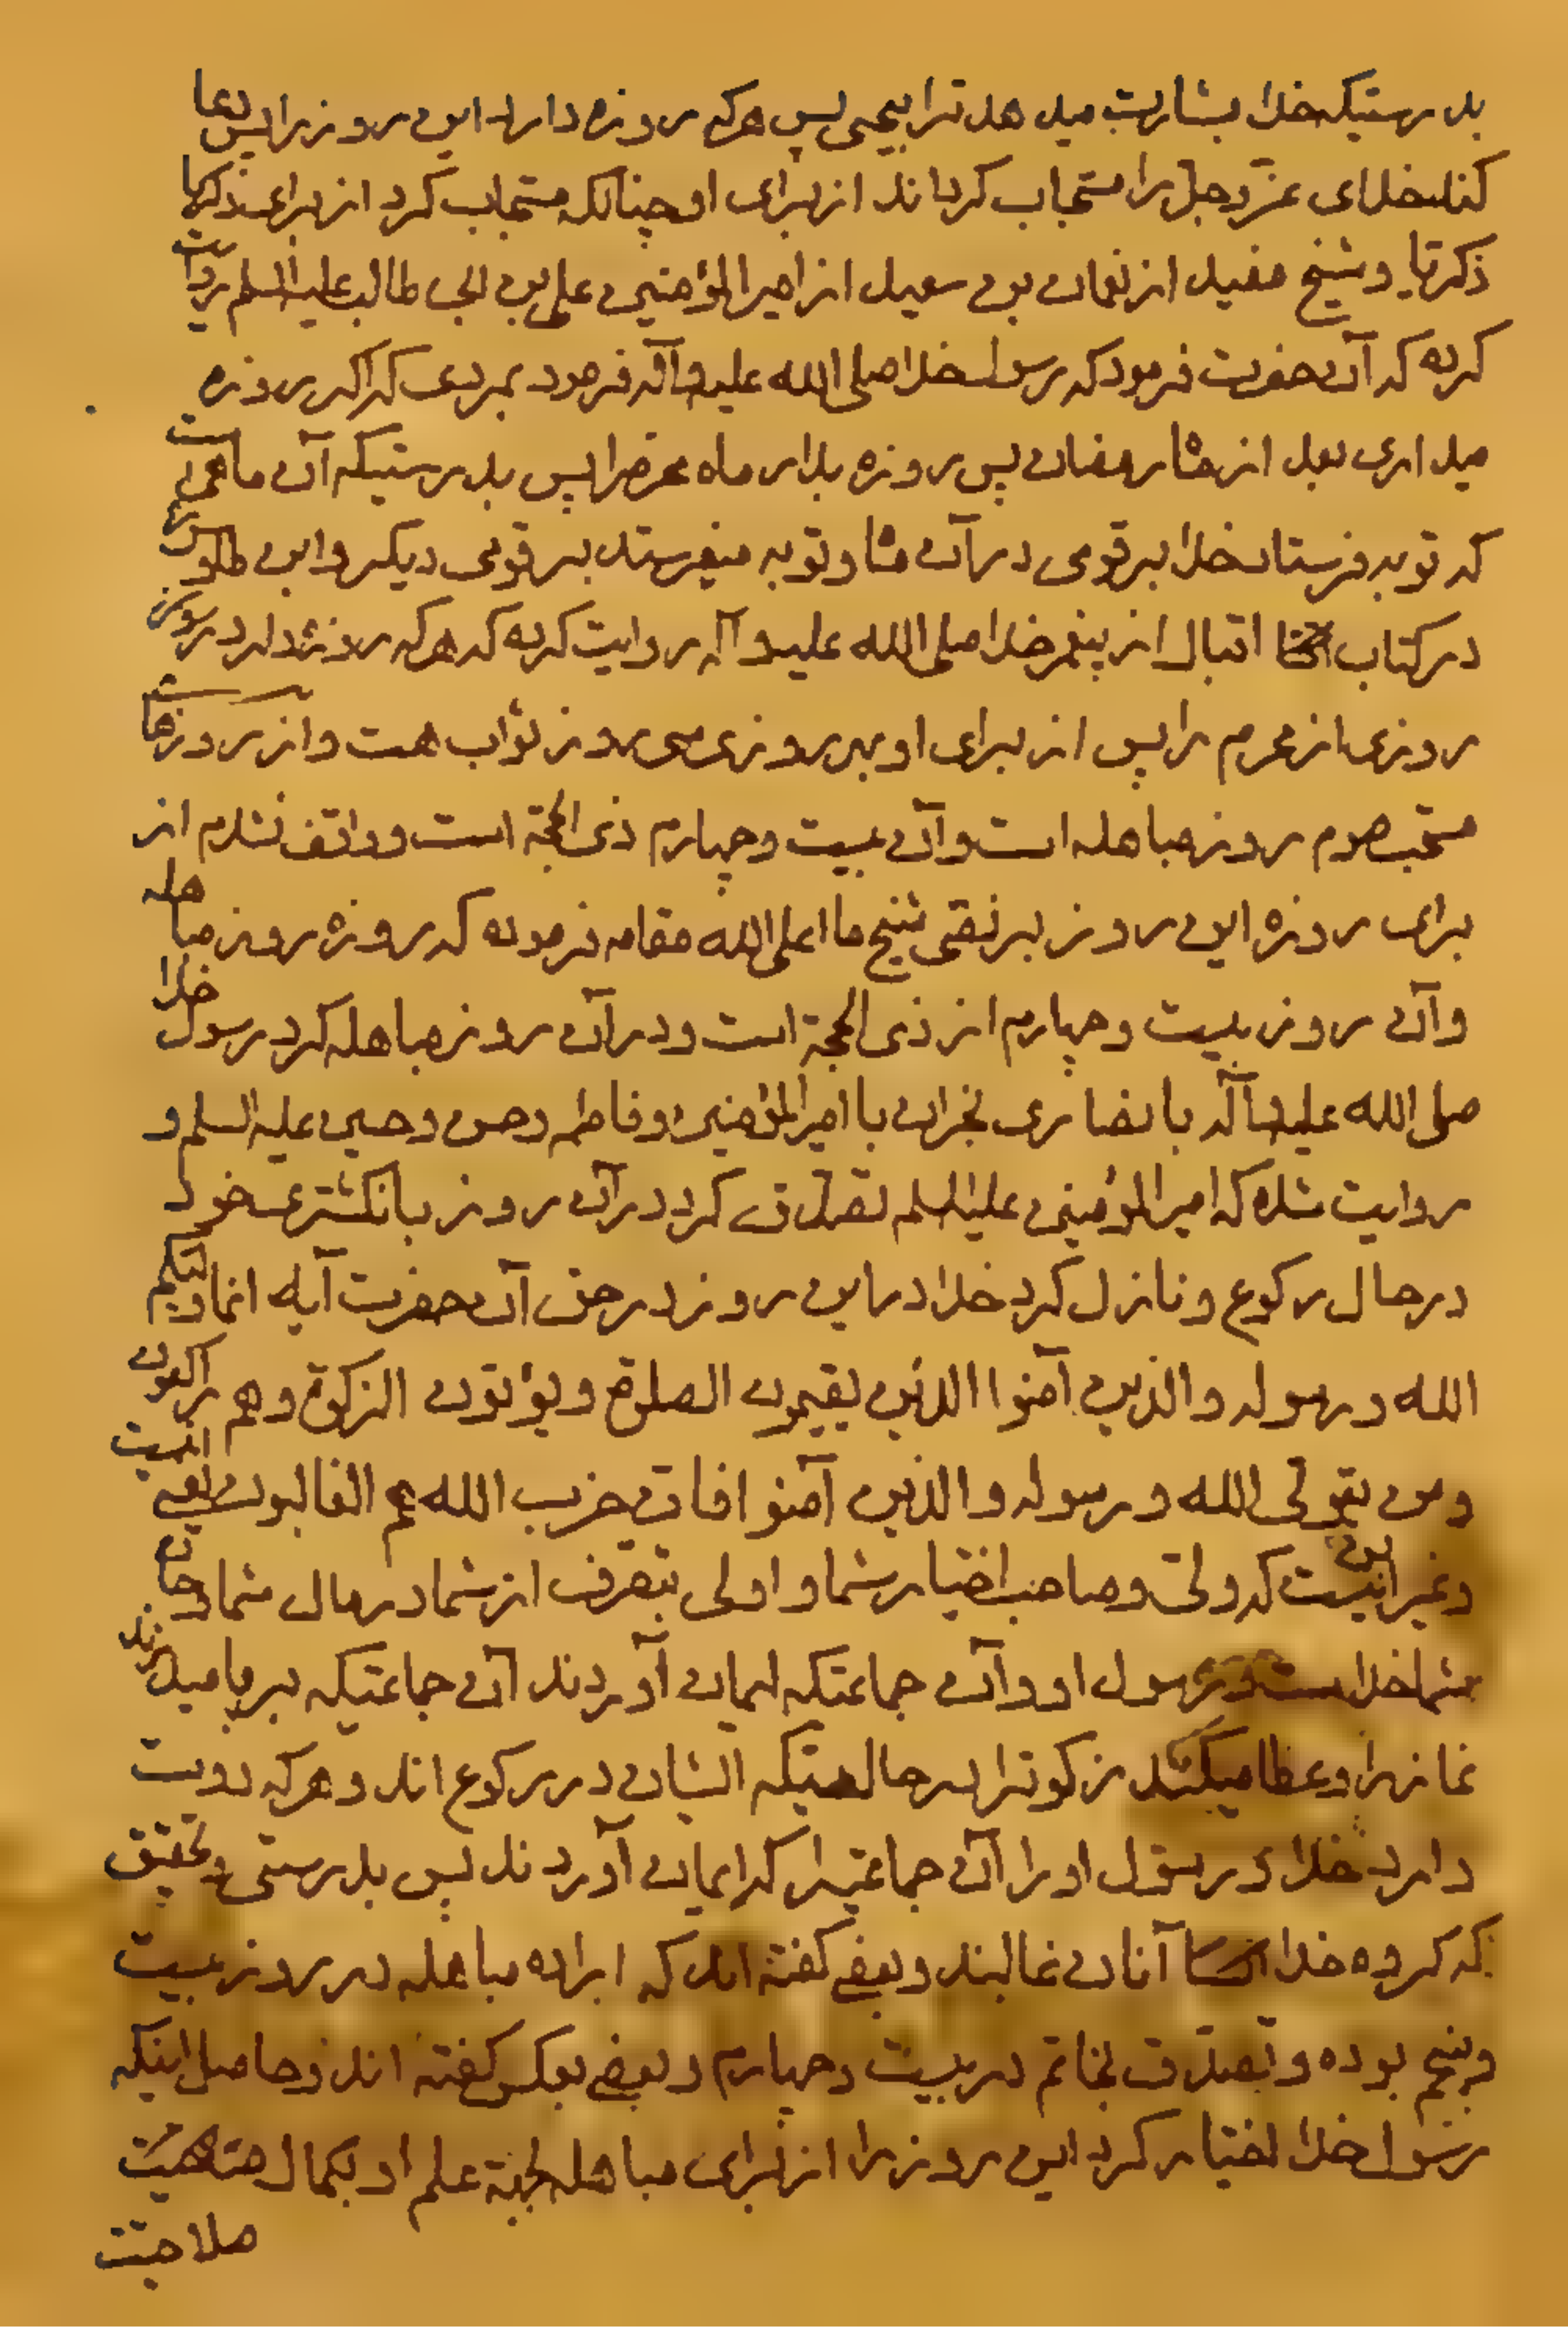 بدرستیکه خدا بشارت میدهد ترا بیحیی پس هرکه روزه دارد این روز را پس دعا
کند خدای عزّوجلّ را مستجاب کرداند از برای او چنانکه مستجاب کرد از برای
ذکریّا و شیخ مفید از نعمان بن سعید از امیرالمؤمنین علی بن ابی طالب علیه السلم روایت
کرده که آن حضرت فرمود که رسول خدا صلی الله علیه وآله فرمود بمردی که اکر روزه
میداری بعد از ماه رمضان پس روزه بدار ماه محرم را پس بدرستیکه آن ماهی است
که توبه فرستاد خدا بر قومی در آن ماه و توبه میفرستد بر قومی دیکر وابن طاوس
در کتاب اقبال از پیغمبر خدا صلی الله علیه وآله روایت کرده که هرکه روزه دارد
روزی از محرم را پس از برای او بهر روزی سی روز ثواب هست و از روزهای
مستحب صوم روز مباهله است و آن بیست و چهارم ذی الحجة است و واقف نشدم از
برای روزه این روز بر نصّی شیخ ما اعلی الله مقامه فرموده که روزه روز مباهله
وآن روز بیست و چهارم از ذی الحجة است و در آن روز مباهله کرد رسول خدا
صلی الله علیه وآله با نصاری نجران با امیرالمؤمنین و فاطمه و حسن و حسین علیه السلم و
روایت شده که امیرالمؤمنین علیه السلم تصدّق کرد در آن روز بانکشتری خود
در حال رکوع و نازل کرد خدا در این روز در حق آن حضرت آیه انما ولیکم
الله و رسوله والذین آمنوا الذین یقیمون الصلوة و یؤتون الزکوة وهم راکعون
ومن یتولی الله و رسوله والذین آمنوا فان حزب الله هم الغالبون یعنی اینست
و غیر این نیست که ولیّ و صاحب اختیار شما و اولی بتصرف از شما در مال شما و جان
شما خداست و رسول او و آن جماعتیکه ایمان آوردند آن جماعتیکه برپا میدارند
نماز را و عطا میکنند زکوة را در حالتیکه ایشان در رکوع اند و هرکه دوست
دارد خدا و رسول او را آن جماعتیرا که ایمان آوردند پس بدرستی و تحقیق
که کروه خدا آنان غالبند و بعضی کفته اند که اراده مباهله در روز بیست
و پنجم بوده و تصدّق بخاتم در بیست و چهارم و بعضی بعکس کفته اند و حاصل اینکه
رسول خدا اختیار کرد این روز را از برای مباهله بجهة علم او بکمال